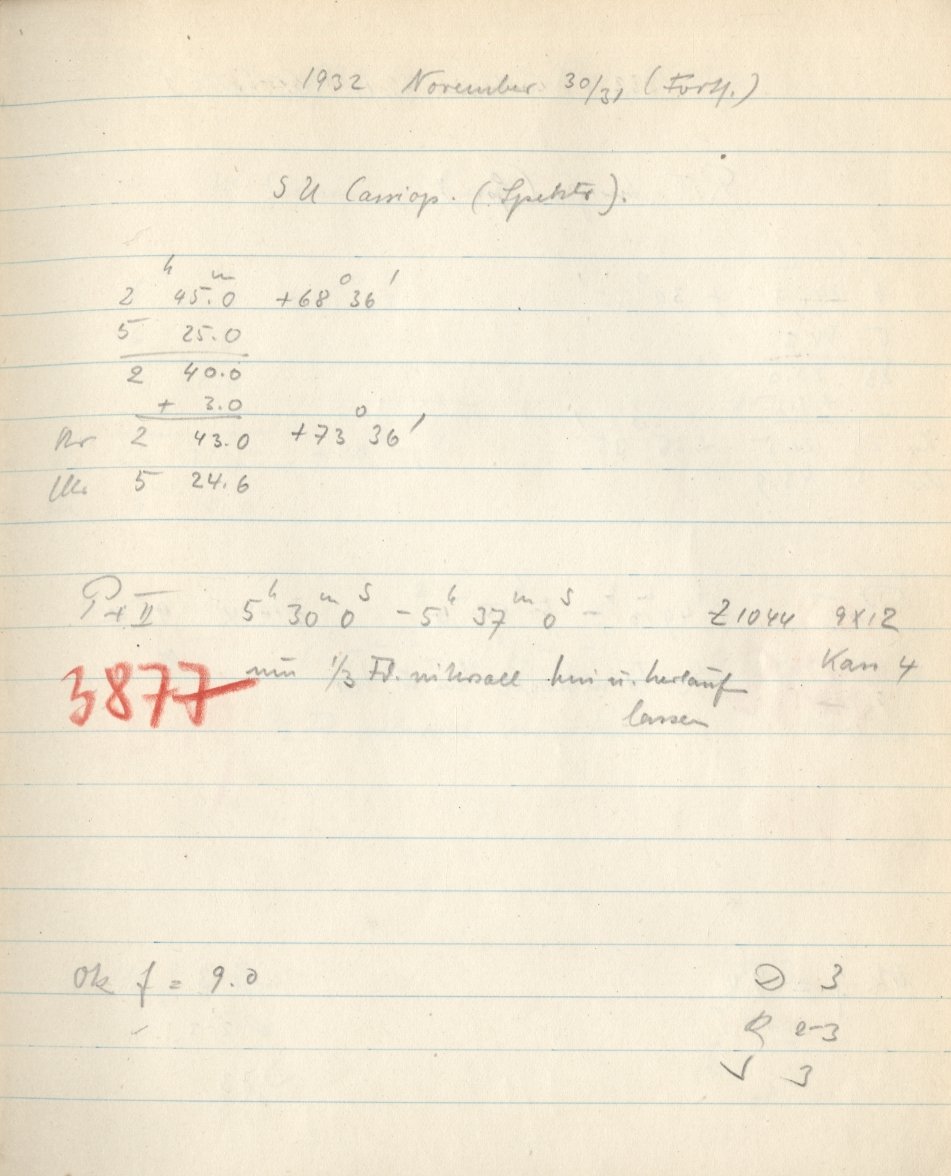 1932 November 30/31 (Forts.)
SU Cassiop. (Spektr).
2ʰ 45ᵐ.0 +68° 36'
5 25.0
2 40.0
+ 3.0
Kr 2 43.0 +73° 36'
5 24.6
P+II 5ʰ 30ᵐ 0ˢ - 5ʰ 37ᵐ 0ˢ - Z1044 9x12
Kass 4
3877 1/3 hin u. herlauf
lassen
Ok f = 9.0
D 3
R 2-3
V 3